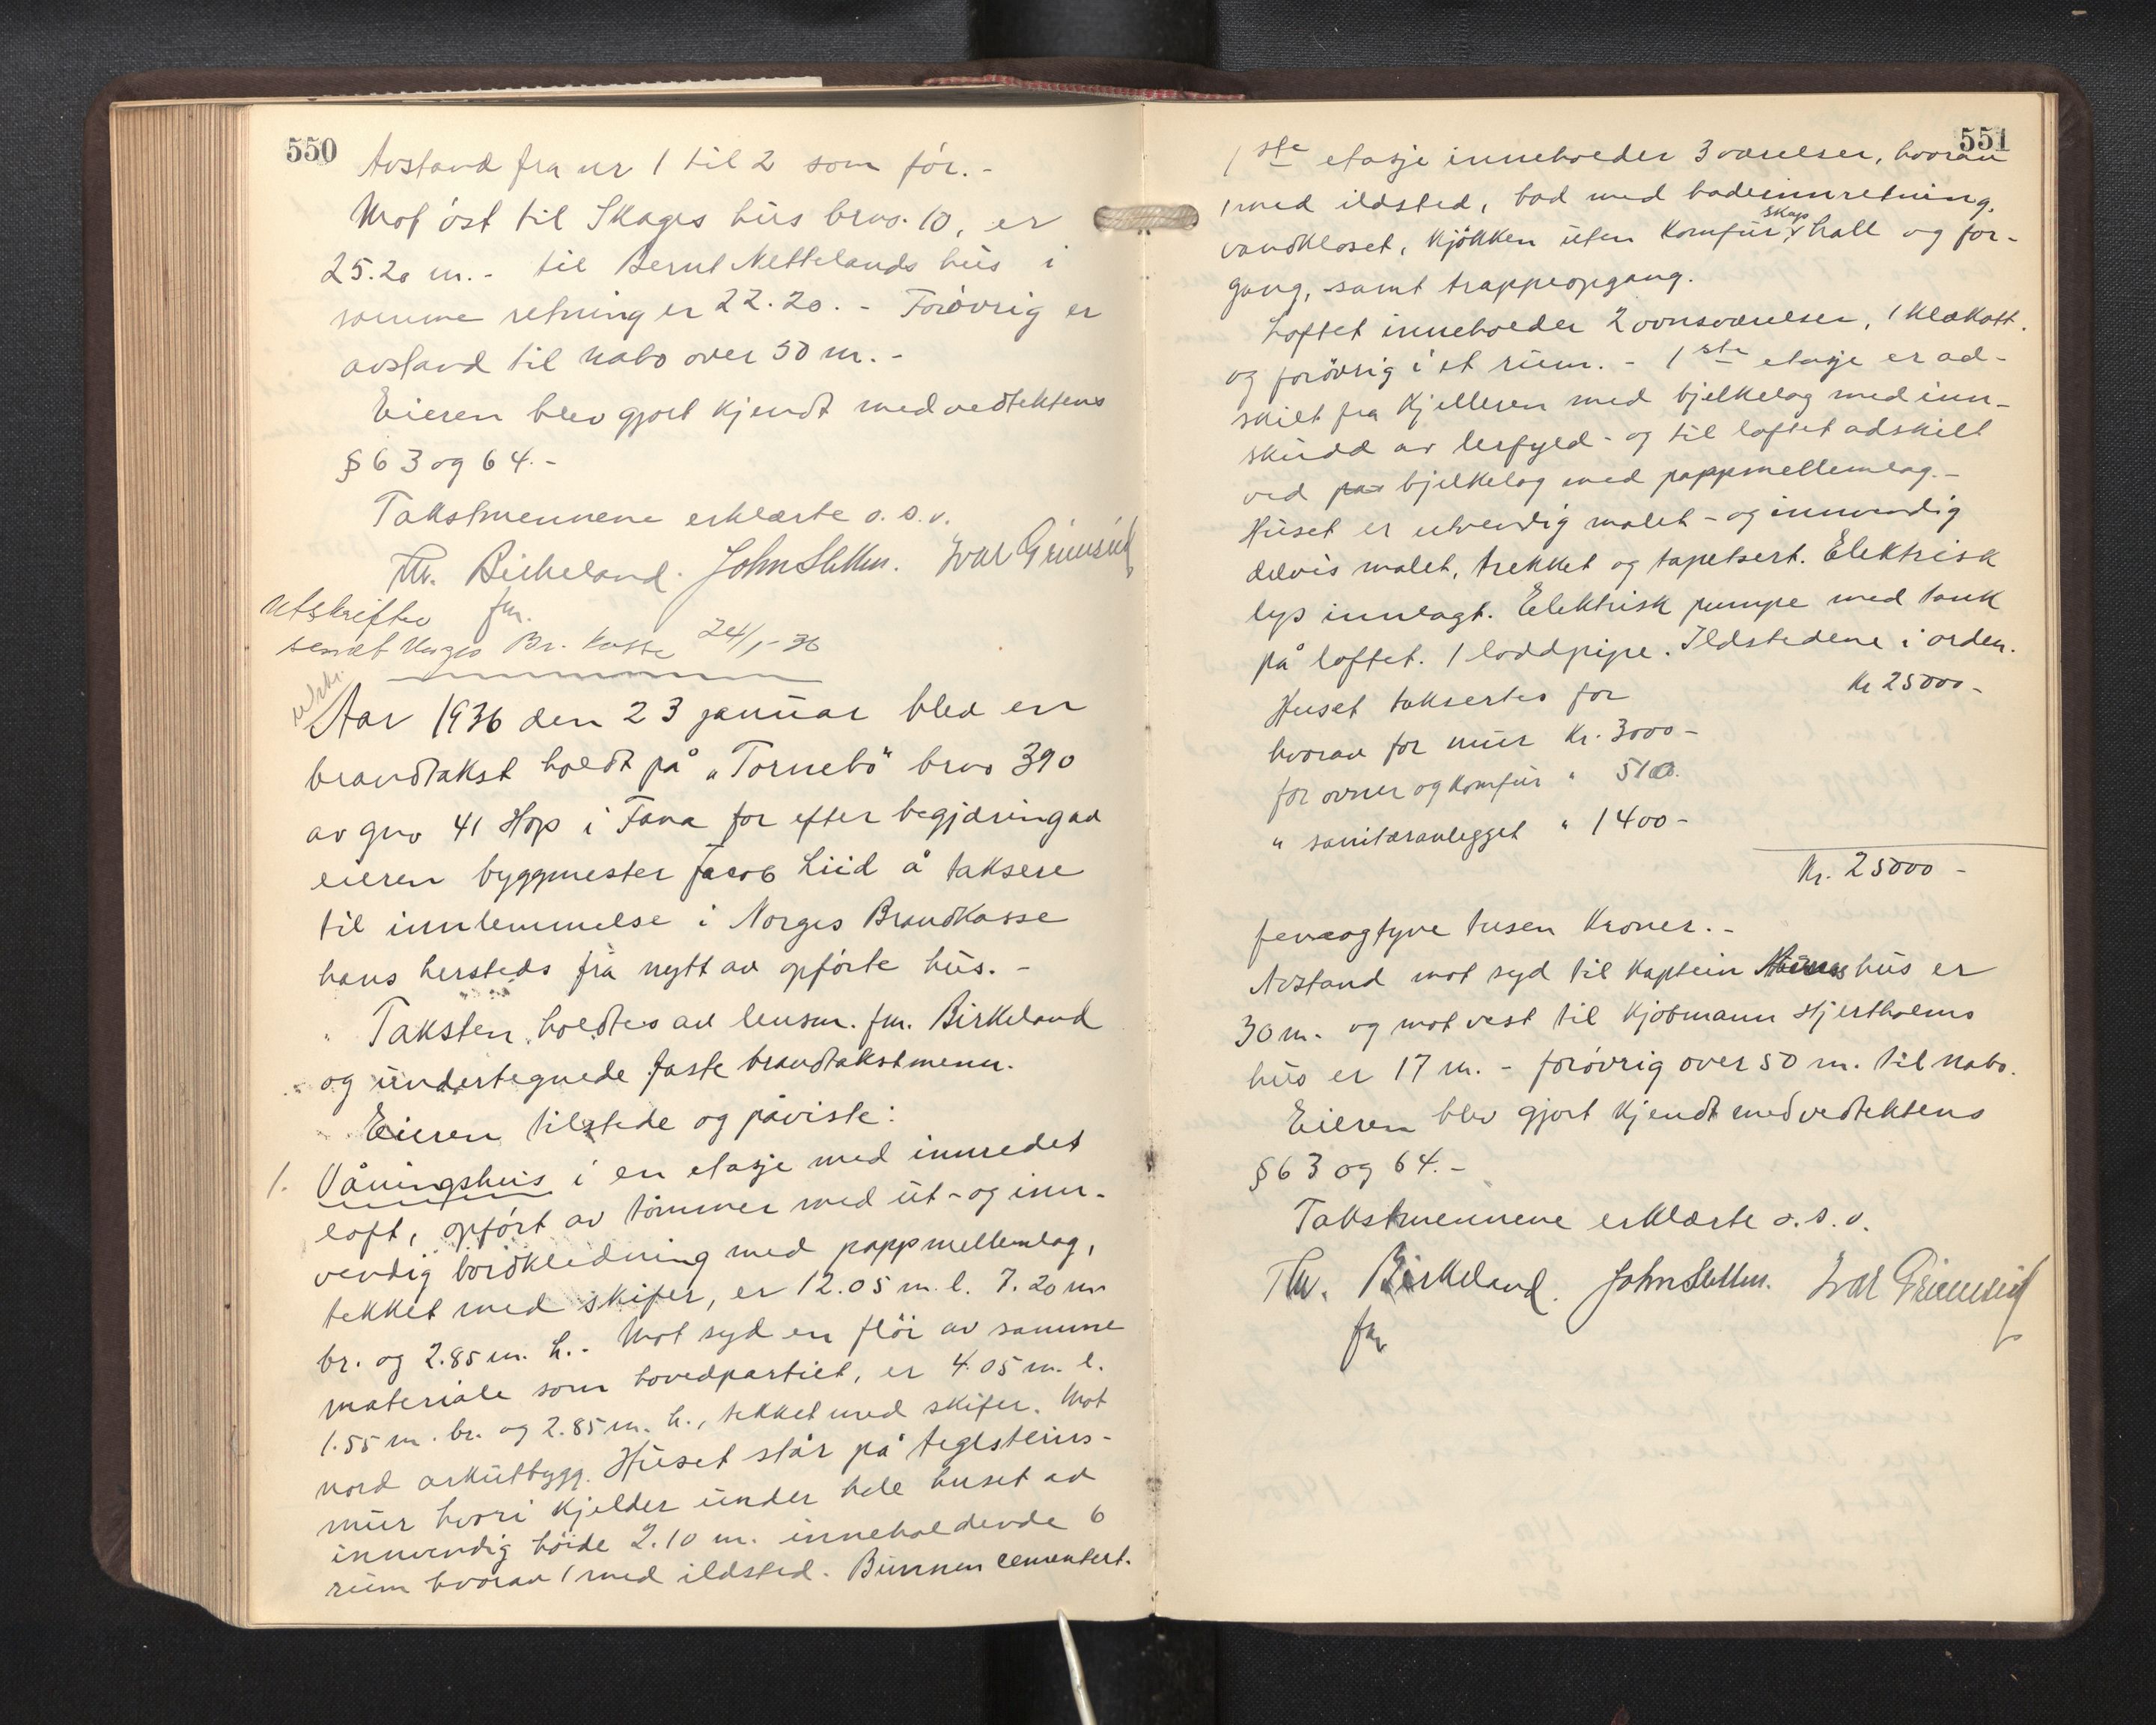 550
Avstand fra nr 1 til 2 som før. -
Mot öst til Skages hüs brno. 10, er
25.20 m. - til Bernt Nettelands hüs i
samme retning er 22.20. - Forövrig er
avstand til nabo over 50 m. -
Eieren blev gjort kjendt med vedtektens
§ 63 og 64. -
Takstmennene erklærte o. s. v.
Th. Birkeland. John Sletten. Ivar Grimseid
fm.
Utskrifter
sendt Norges Br. kasse 24/1-36
Utskr.
Aar 1936 den 23 januar blev en
brandtakst holdt på „Tornebö" brno 390
av gno 41 Hop i Fana for efter begjæring av
eieren byggmester Jacob Liid å taksere
til innlemmelse i Norges Brandkasse
hans hersteds fra nytt av opførte hüs. -
Taksten holdtes av lensm. fm. Birkeland
og undertegnede faste brandtakstmenn.
Eieren tilstede og påviste:
1. Våningshüs i en etasje med innredet
loft, opført av tömmer med üt- og inn-
vendig bordkledning med pappmellemlag,
tekket med skifer, er 12.05 m. l. 7.20 m
br. og 2.85 m. h. - Mot syd en flöi av samme
materiale som hovedpartiet, er 4.05 m. l.
1.55 m. br. og 2.85 m. h., tekket med skifer. Mot
nord arkütbygg. Hüset står på teglsteins-
mür hvori kjelder ünder hele huset av
innvendig höide 2.10 m. inneholdende 6
rüm hvorav 1 med ildsted. Bunnen cementert.
551
1ste etasje inneholder 3 værelser, hvorav
1 med ildsted, bad med badeinnretning,
vandkloset, kjökken üten komfür, skap hall og for-
gang, samt trappeopgang.
Loftet inneholder 2 ovnsværelser, 1 klækott.
og forövrig i et rüm. - 1ste etasje er ad-
skilt fra kjelleren med bjelkelag med inn-
skudd av lerfyld - og til loftet adskilt
ved bjelkelag med pappmellemlag. -
Hüset er utvendig malet - og innvendig
delvis malet, trekket og tapetsert. Elektrisk
lys innlagt. Elektrisk pumpe med tank
på loftet. 1 loddpipe. Ildstedene i orden.
Huset taksertes for kr 25000 -
hvorav for mür kr. 3000 -
for ovner og komfür " 510.
" sanitæranlegget " 1400 -
Kr. 25000 -
femogtyve tusen kroner. -
Avstand mot syd til kaptein hüs er
30 m. og mot vest til kjöbmann Hjertholms
hüs er 17 m. - forövrig over 50 m. til nabo.
Eieren blev gjort kjendt med vedtektens
§ 63 og 64. -
Takstmennene erklærte o. s. v.
Th. Birkeland. John Sletten. Ivar Grimseid
fm